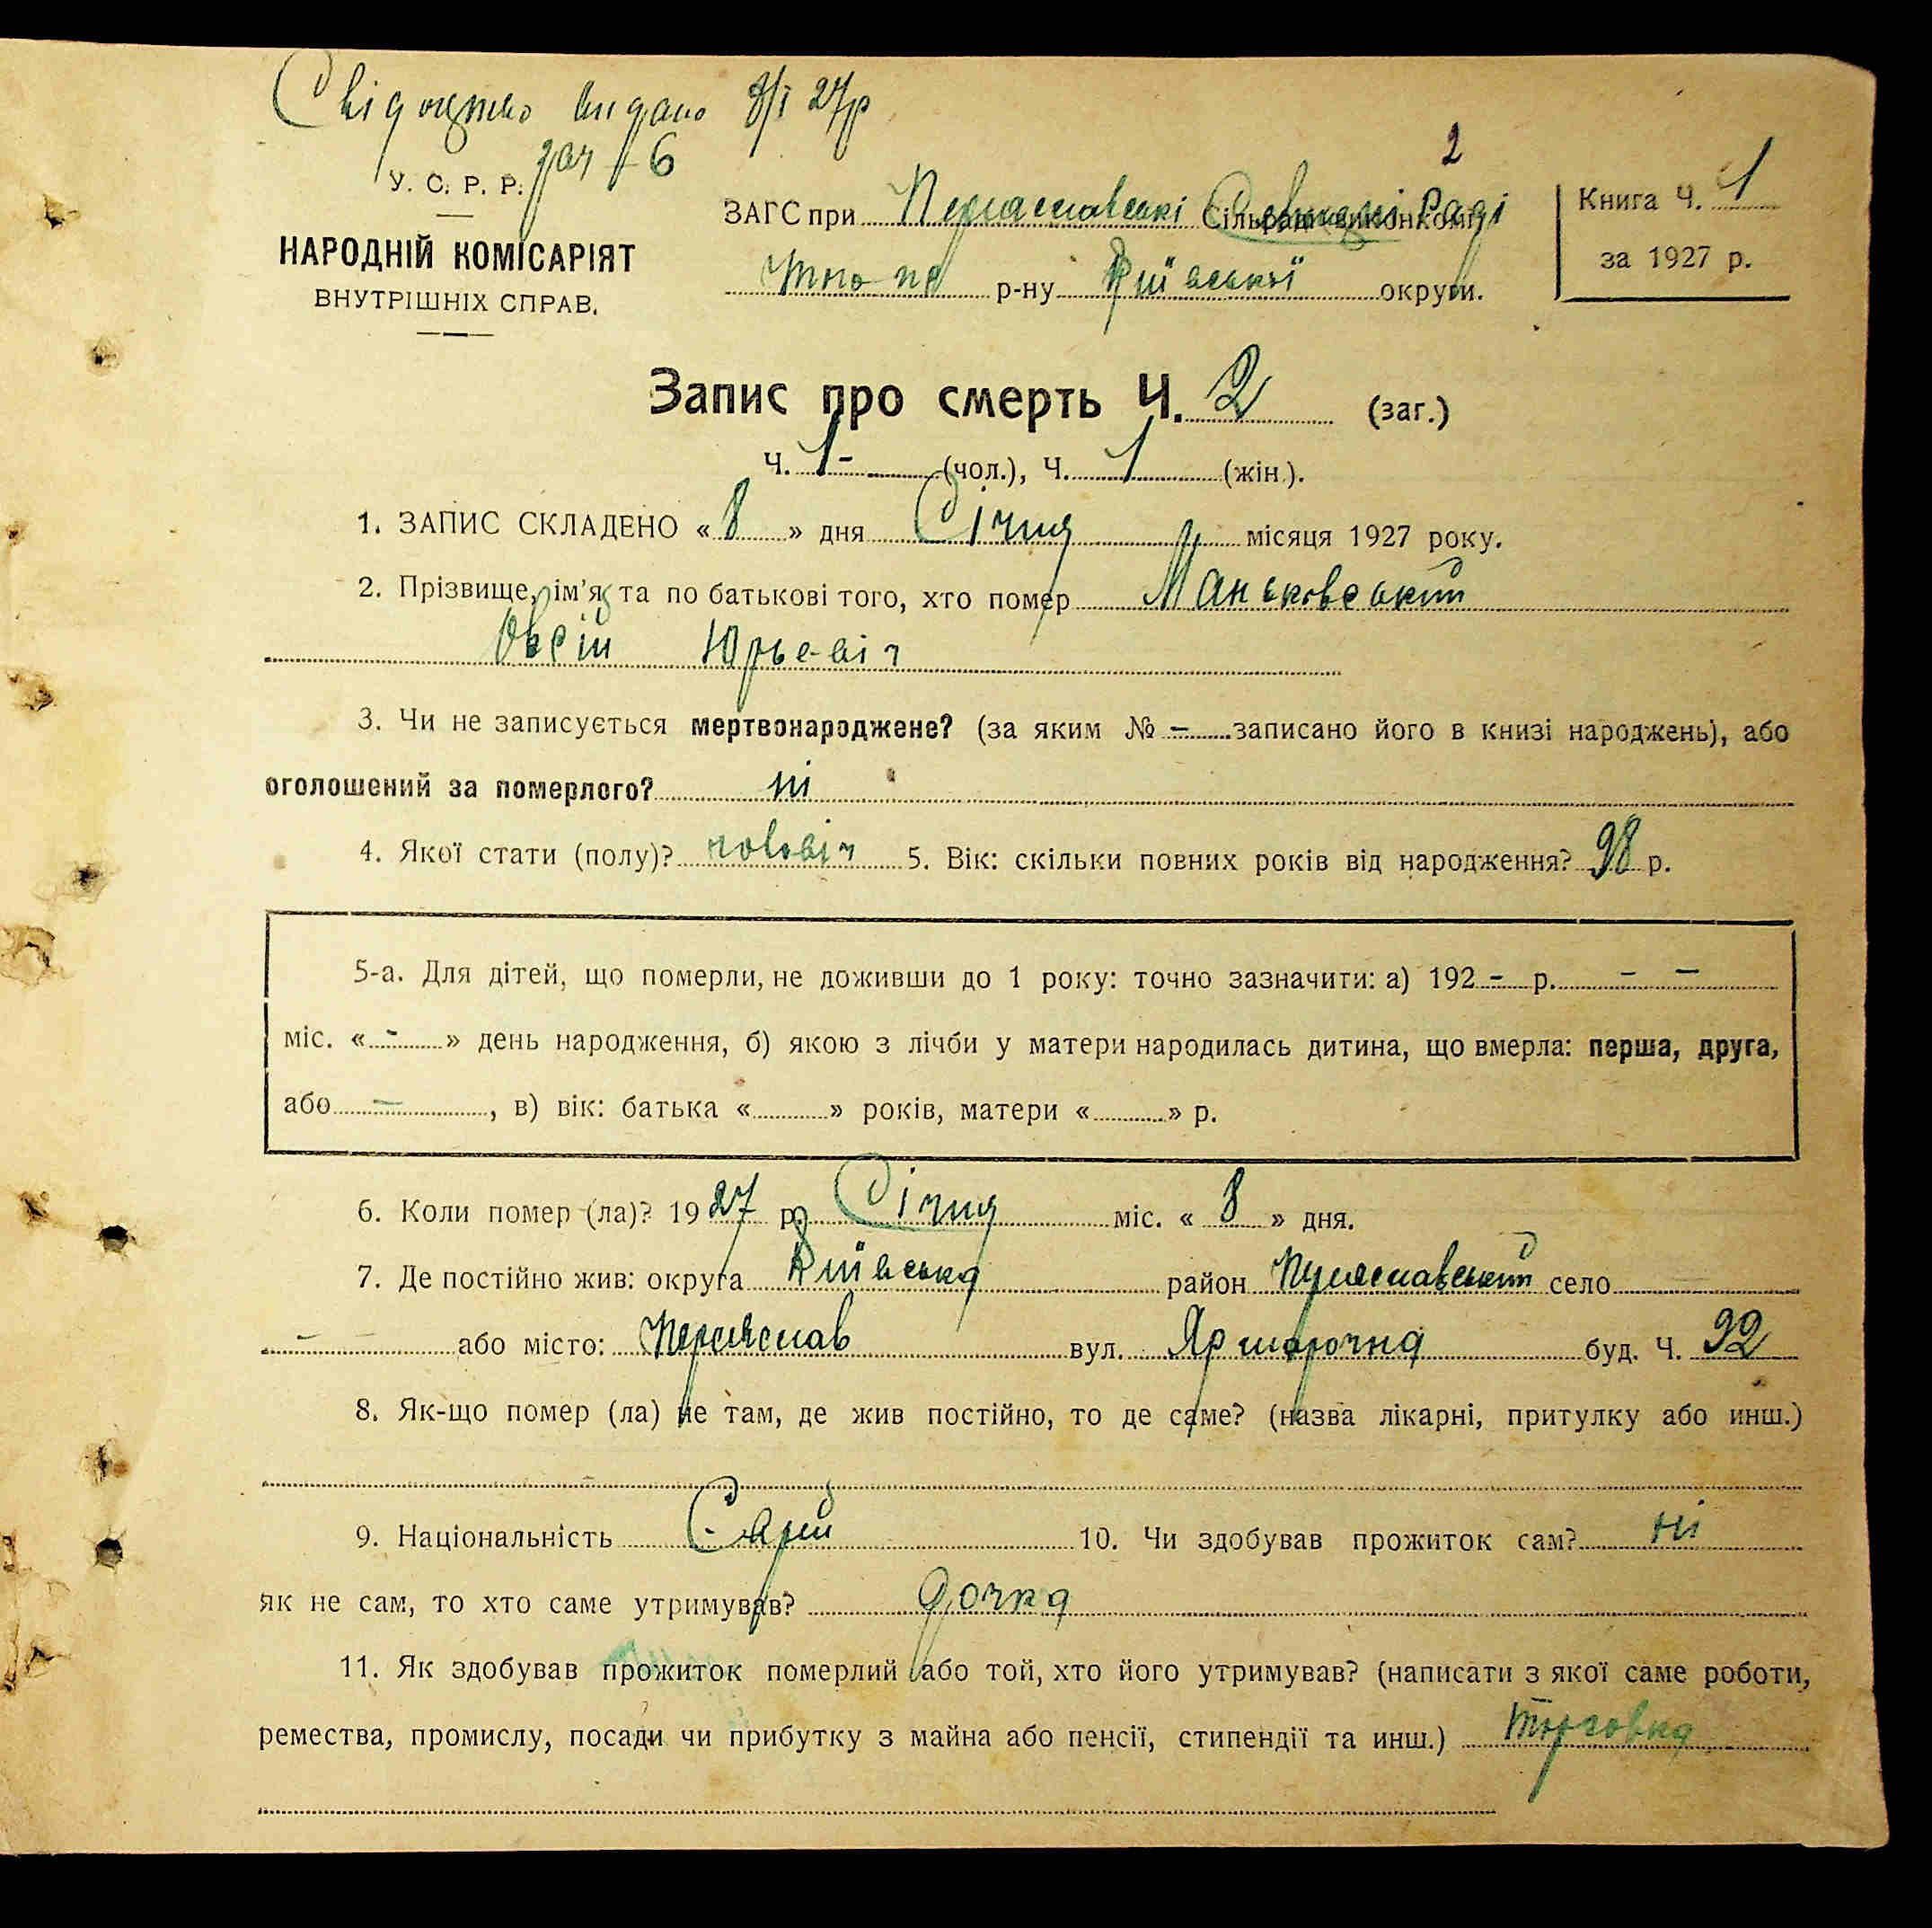 Свідоцтво видано 8/I 27р
зач 6
У. С. Р. Р.
НАРОДНІЙ КОМІСАРІЯТ
ВНУТРІШНІХ СПРАВ.
2
ЗАГС при Переяславські Сільрад.-виконкомі Раді
того же р-ну Київської округи.
Книга Ч. 1
за 1927 р.
Запис про смерть Ч. 2 (заг.)
Ч. 1- (чол.), Ч. 1 (жін.).
1. ЗАПИС СКЛАДЕНО «8» дня Січня місяця 1927 року.
2. Прізвище, ім'я, та по батькові того, хто помер Маньковський
Овсій Юрьевіч
3. Чи не записується мертвонароджене? (за яким № - записано його в книзі народжень), або
оголошений за померлого? ні
4. Якої стати (полу)? чоловіч 5. Вік: скільки повних років від народження? 98 р.
5-а. Для дітей, що померли, не доживши до 1 року: точно зазначити: а) 192 - р. - -
міс. « - » день народження, б) якою з лічби у матери народилась дитина, що вмерла: перша, друга,
або - , в) вік: батька « » років, матери « » р.
6. Коли помер (ла)? 1927 р. Січня міс. « 8 » дня.
7. Де постійно жив: округа Київська район Переяславський село
- - або місто: Переяслав вул. Ярмарочна буд. Ч. 92
8. Як-що помер (ла) не там, де жив постійно, то де саме? (назва лікарні, притулку або инш.)
9. Національність Єврей 10. Чи здобував прожиток сам? ні
як не сам, то хто саме утримував? дочка
11. Як здобував прожиток померлий або той, хто його утримував? (написати з якої саме роботи,
ремества, промислу, посади чи прибутку з майна або пенсії, стипендії та инш.) торговка